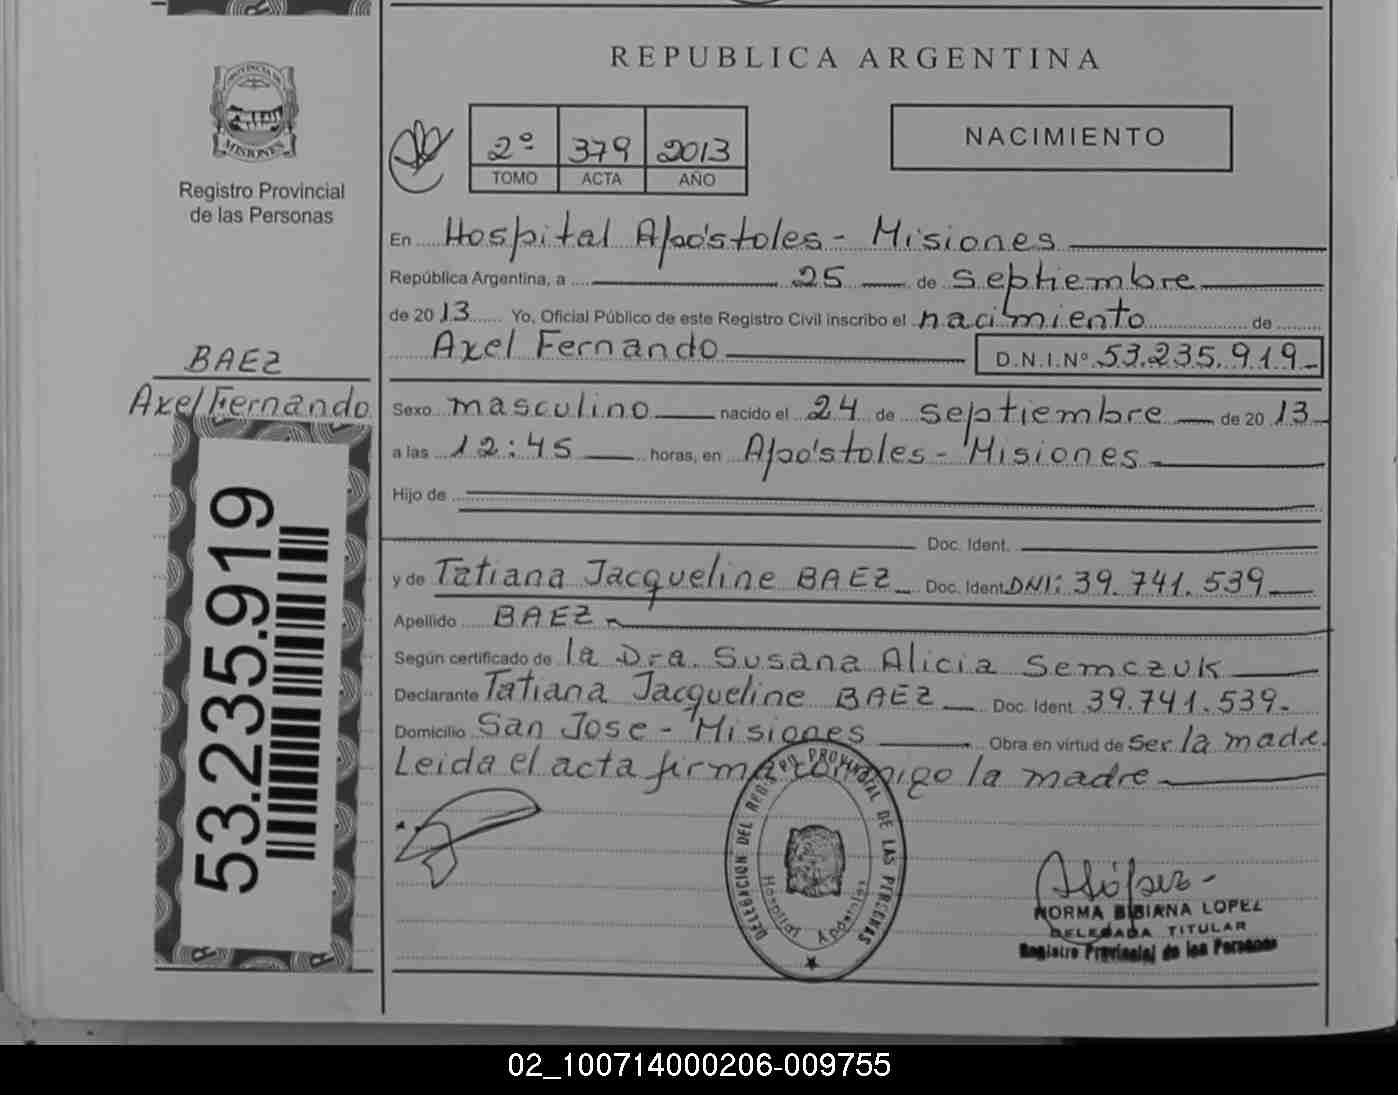 REPUBLICA ARGENTINA
PROVINCIA DE
MISIONES
Registro Provincial
de las Personas
2º 379 2013
TOMO ACTA AÑO
NACIMIENTO
En Hospital Apóstoles - Misiones
República Argentina, a 25 de septiembre
de 2013 Yo, Oficial Público de este Registro Civil inscribo el nacimiento de
Axel Fernando D.N.I.Nº 53.235.919
BAEZ
Axel Fernando
53.235.919
Sexo masculino nacido el 24 de septiembre de 2013
a las 12:45 horas, en Apóstoles - Misiones
Hijo de
Doc. Ident.
y de Tatiana Jacqueline BAEZ Doc. Ident. DNI: 39.741.539
Apellido BAEZ
Según certificado de la Dra. Susana Alicia Semczuk
Declarante Tatiana Jacqueline BAEZ Doc. Ident. 39.741.539-
Domicilio San Jose - Misiones Obra en virtud de ser la madre.
Leida el acta firma conmigo la madre
DELEGACION DEL REGISTRO PROVINCIAL DE LAS PERSONAS
Hospital Apóstoles
NORMA BIBIANA LOPEZ
DELEGADA TITULAR
Registro Provincial de las Personas
02_100714000206-009755